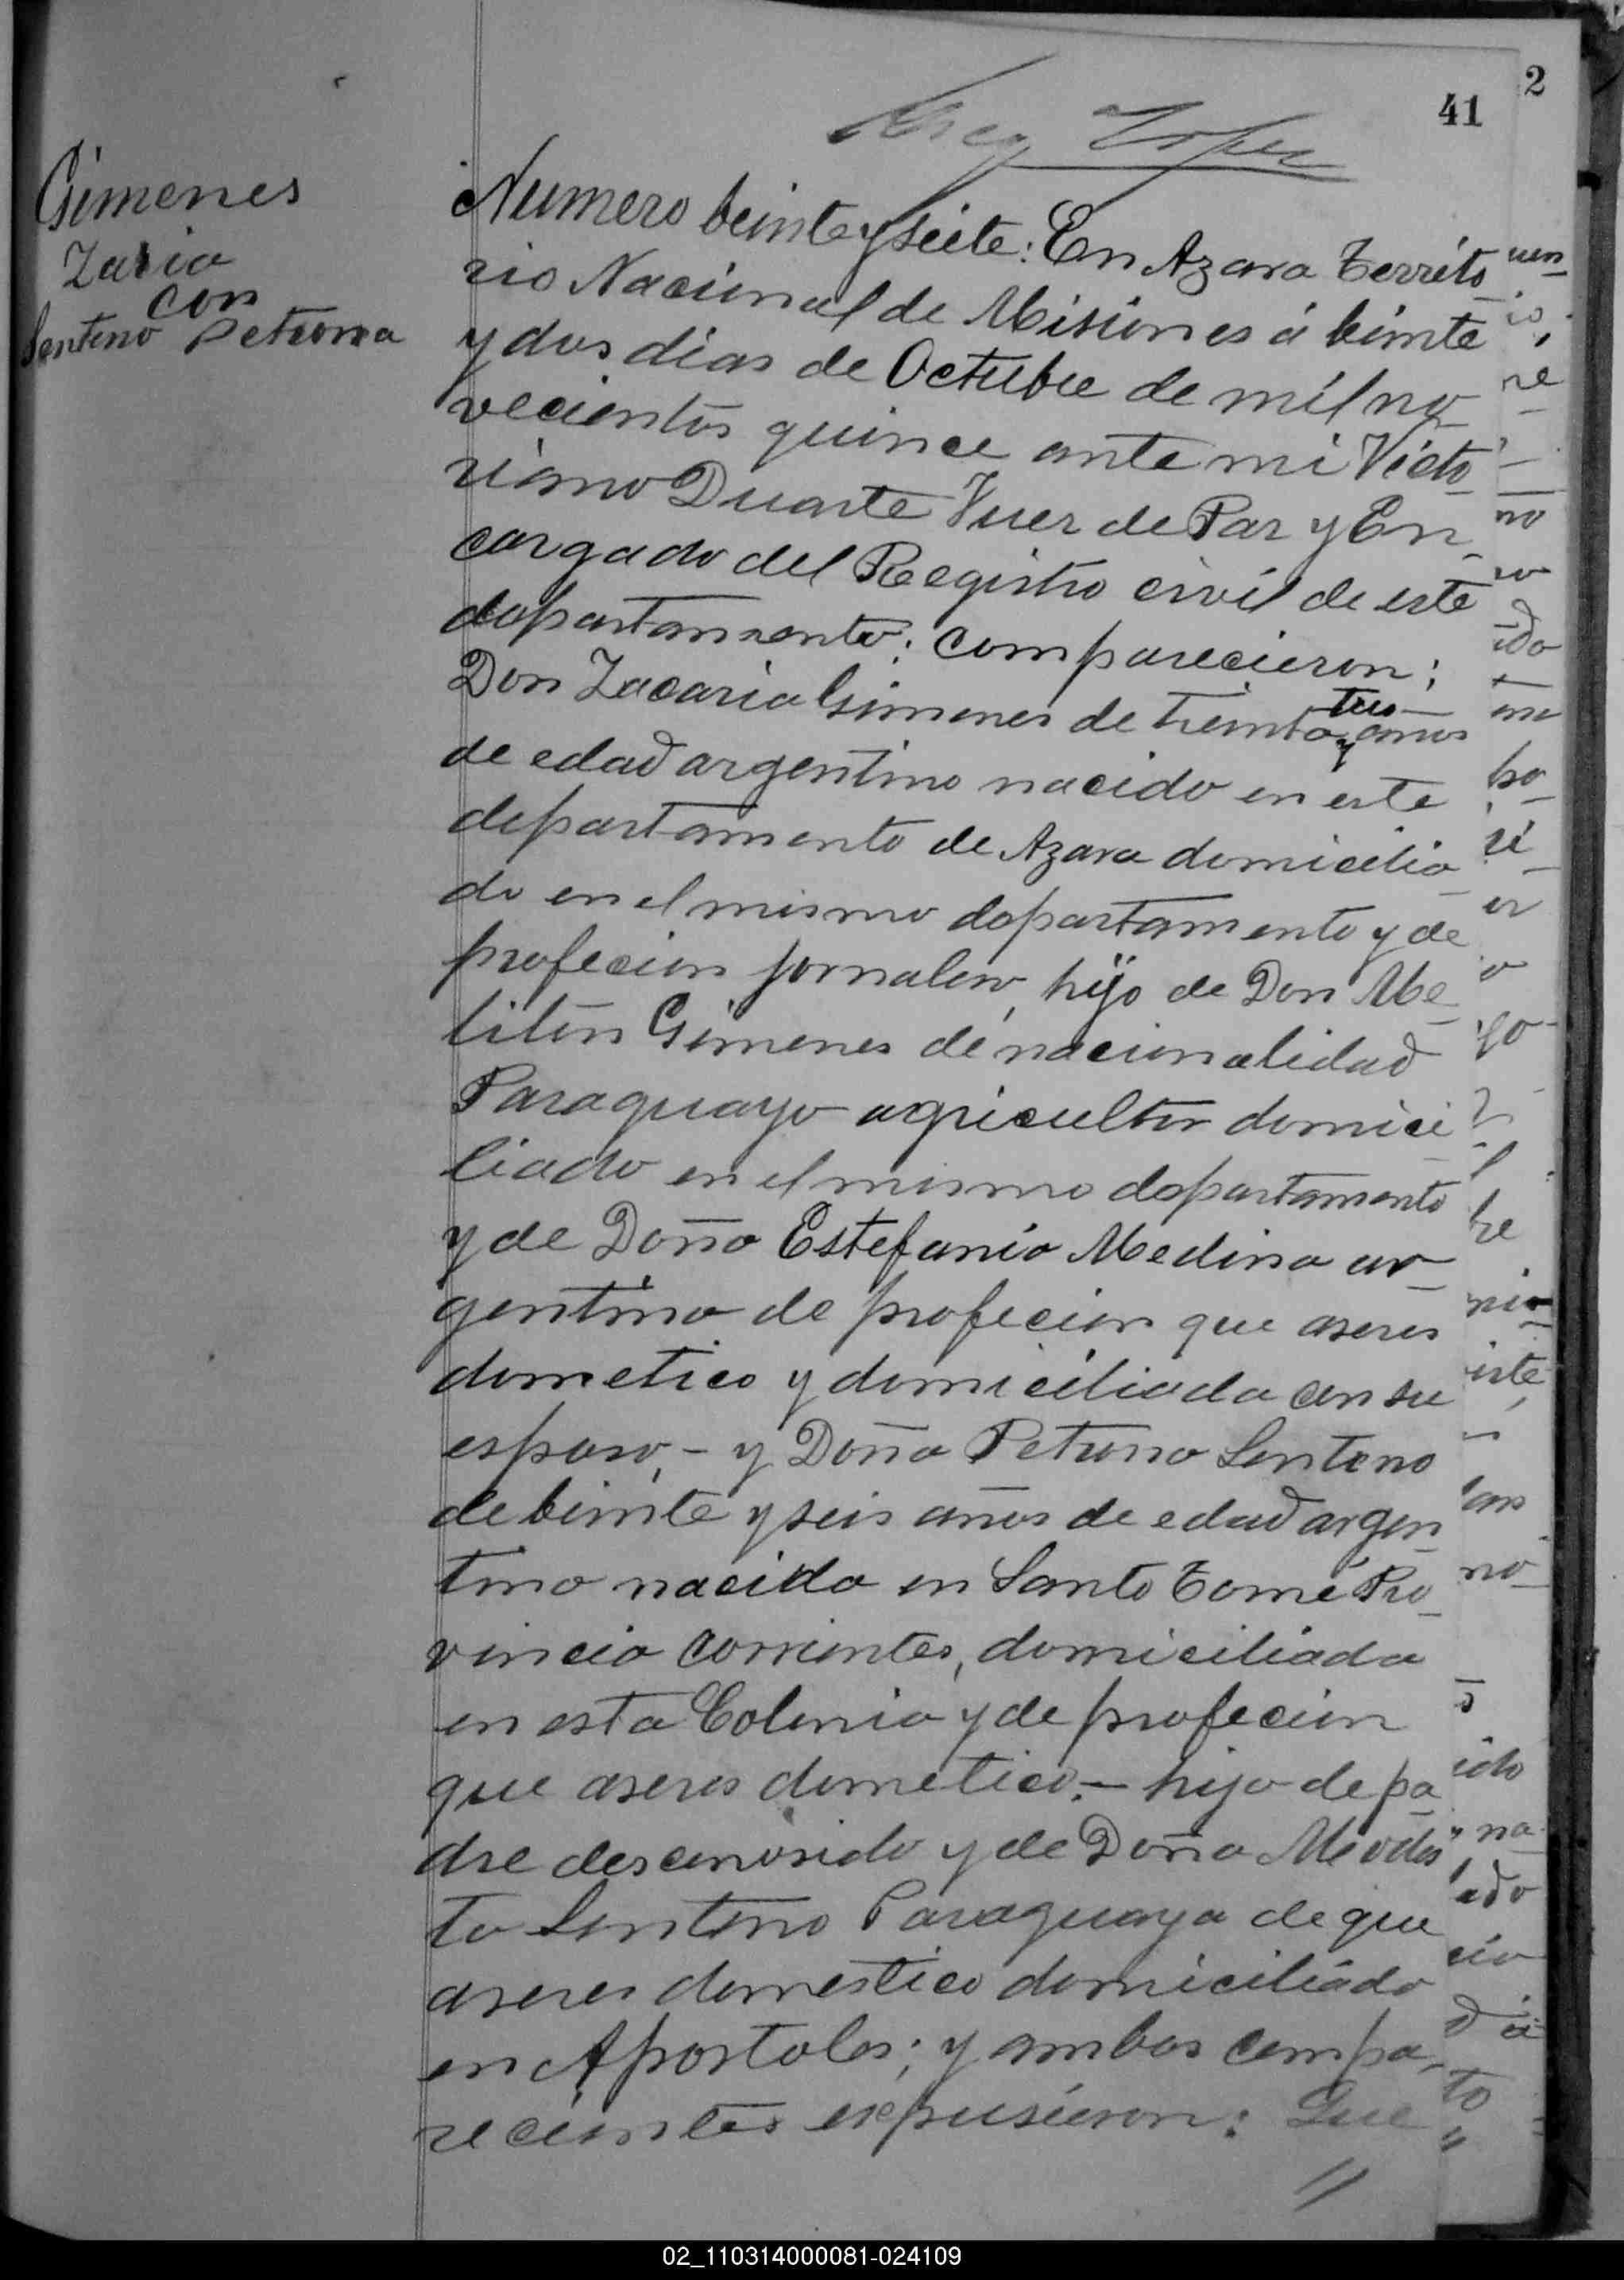 2
41
Gimenes
Zaria
con
Senteno Petrona
Numero beinte y siete: En Azara Territo
rio Nacional de Misiones á beinte
y dos dias de Octubre de mil no
vecientos quince ante mi Victo
riano Duarte Juez de Paz y En
cargado del Registro civil de este
departamento; comparecieron;
Don Zacaria Gimenes de treinta y tres años
de edad argentino nacido en este
departamento de Azara domicilia
do en el mismo departamento y de
profecion jornalero, hijo de Don Me
liton Gimenes de nacionalidad
Paraguayo agricultor domici
liado en el mismo departamento
y de Doña Estefania Medina ar
gentina de profecion que aseres
dometico y domiciliada con su
esposo, - y Doña Petrona Senteno
de beinte y seis años de edad argen
tina nacida en Santo Tomé Pro
vincia Corrientes, domiciliada
en esta Colonia y de profecion
que aseres dometico. - hija de pa
dre desconosido y de Doña Modes
ta Senteno Paraguaya de que
aseres domestico domiciliada
en Apostoles; y ambos compa
recientes expusieron: Que
02_110314000081-024109